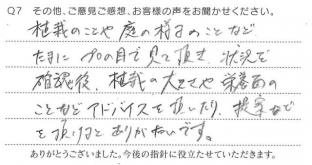 Q7 その他、ご意見ご感想、お客様の声をお聞かせください。
植栽のことや庭の様子のことなど
たまに プロの目で見て頂き、状況を
確認後、植栽の大きさや栄養面の
ことなどアドバイスを頂いたり、提案など
を頂けるとありがたいです。
ありがとうございました。今後の指針に役立たせていただきます。